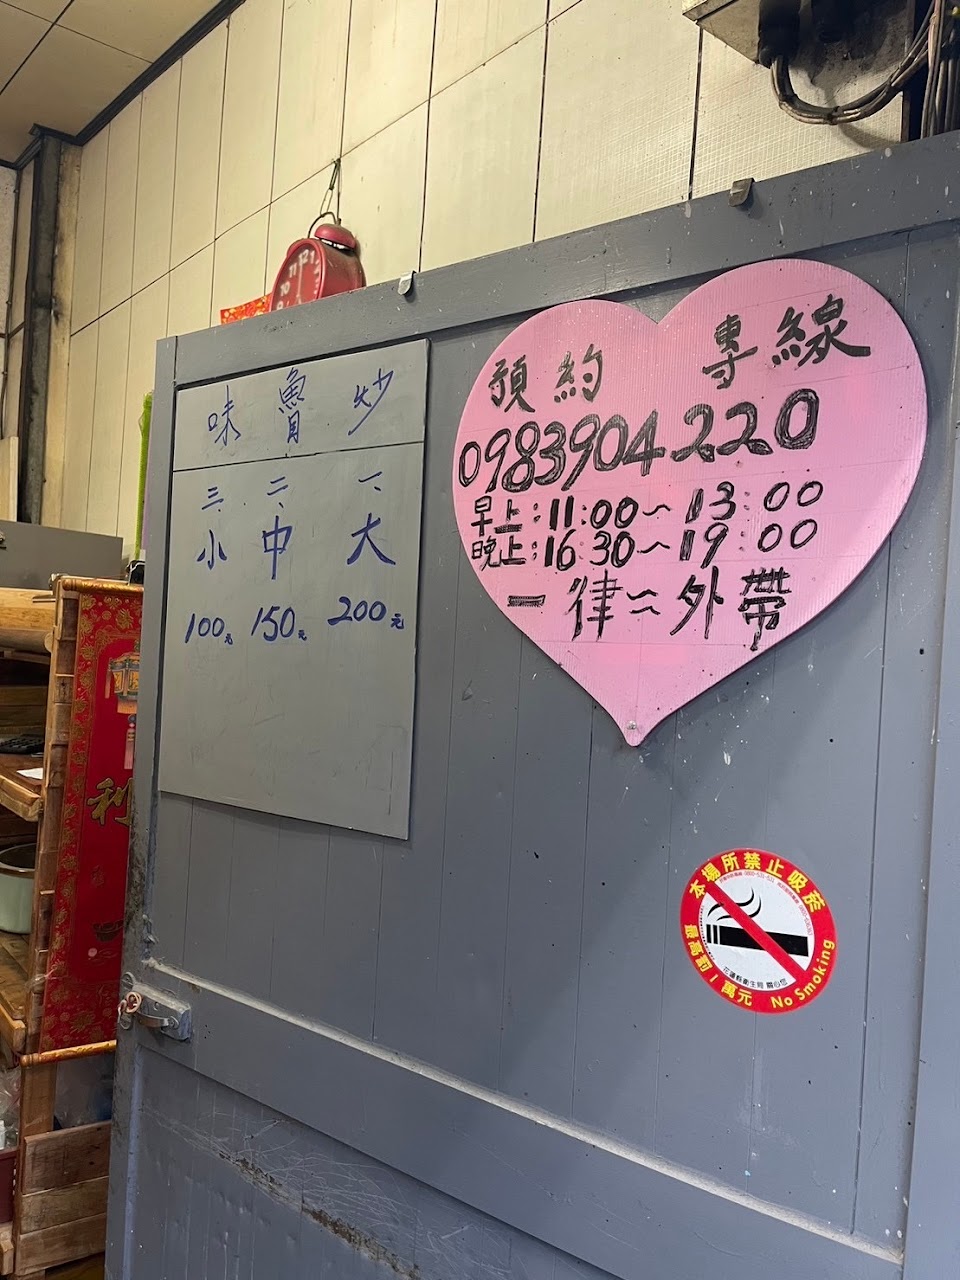 炒魯味
一、大 200元
二、中 150元
三、小 100元
預約 專線
0983904220
早上:11:00~13:00
晚上:16:30~19:00
一律=外帶
本場所禁止吸菸
花蓮縣衛生局 關心您
最高罰1萬元 No Smoking
利
10 11 12 1